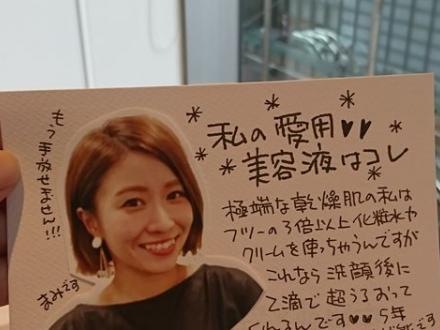 私の愛用♥♥
美容液はコレ
極端な乾燥肌の私は
フツーの3倍以上化粧水や
クリームを使っちゃうんですが
これなら洗顔後に
2滴で超うるおって
くれるんです♥♥5年
もう手放せません!!!
まみです